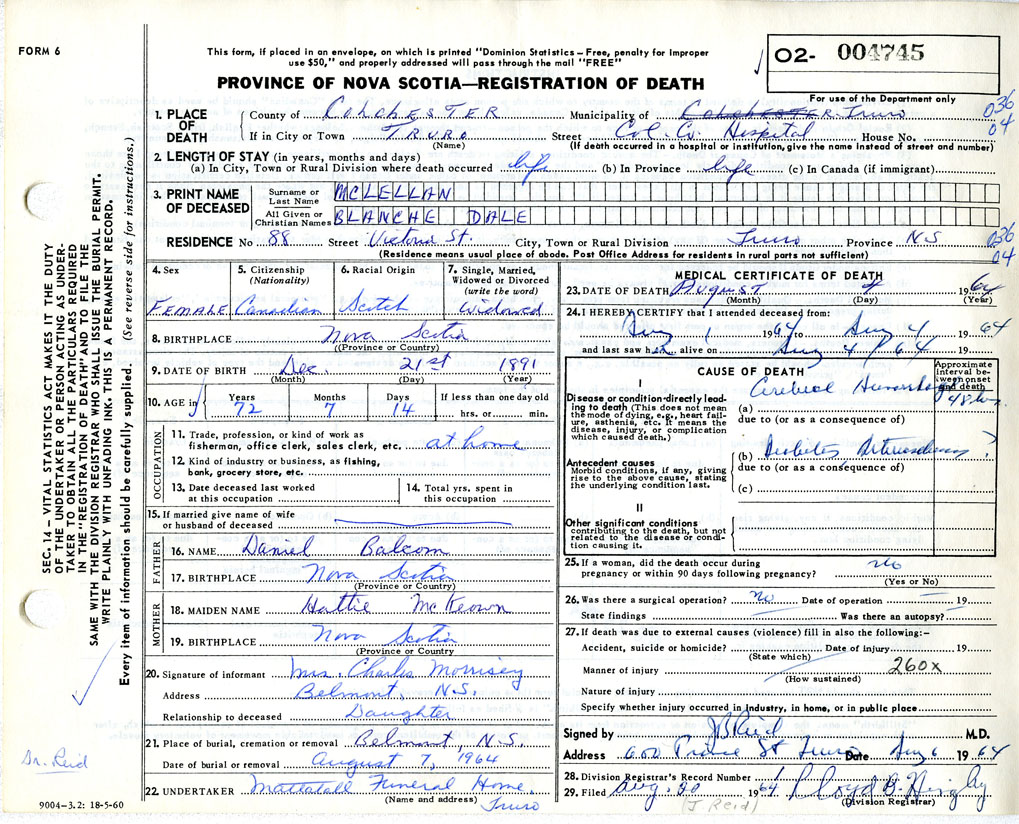 FORM 6
This form, if placed in an envelope, on which is printed "Dominion Statistics – Free, penalty for improper
use $50," and properly addressed will pass through the mail "FREE"
PROVINCE OF NOVA SCOTIA—REGISTRATION OF DEATH
O2- 004745
For use of the Department only
036
04
1. PLACE OF DEATH
County of COLCHESTER Municipality of COLCHESTER Truro
If in City or Town TRURO Street Col. Co. Hospital House No.
(Name) (If death occurred in a hospital or institution, give the name instead of street and number)
2. LENGTH OF STAY (in years, months and days)
(a) In City, Town or Rural Division where death occurred life (b) In Province life (c) In Canada (if immigrant)
3. PRINT NAME OF DECEASED
Surname or Last Name MCLELLAN
All Given or Christian Names BLANCHE DALE
RESIDENCE No 88 Street Victoria St. City, Town or Rural Division Truro Province N.S
036
04
(Residence means usual place of abode. Post Office Address for residents in rural parts not sufficient)
4. Sex FEMALE
5. Citizenship (Nationality) Canadian
6. Racial Origin Scotch
7. Single, Married, Widowed or Divorced (write the word) Widowed
8. BIRTHPLACE Nova Scotia
(Province or Country)
9. DATE OF BIRTH Dec. 21st 1891
(Month) (Day) (Year)
10. AGE in Years 72 Months 7 Days 14 If less than one day old
hrs. or min.
OCCUPATION
11. Trade, profession, or kind of work as
fisherman, office clerk, sales clerk, etc. at home
12. Kind of industry or business, as fishing,
bank, grocery store, etc.
13. Date deceased last worked
at this occupation
14. Total yrs. spent in
this occupation
15. If married give name of wife
or husband of deceased
FATHER
16. NAME Daniel Balcom
17. BIRTHPLACE Nova Scotia
(Province or Country)
MOTHER
18. MAIDEN NAME Hattie McKeown
19. BIRTHPLACE Nova Scotia
(Province or Country)
20. Signature of informant Mrs. Charles Morrisey
Address Belmont, N.S.
Relationship to deceased Daughter
21. Place of burial, cremation or removal Belmont, N.S.
Date of burial or removal August 7, 1964
22. UNDERTAKER Mattatall Funeral Home,
(Name and address) Truro
MEDICAL CERTIFICATE OF DEATH
23. DATE OF DEATH August 4 1964
(Month) (Day) (Year)
24. I HEREBY CERTIFY that I attended deceased from:
Aug 1 1964 to Aug 4 1964
and last saw her alive on Aug 4 / 64 19
CAUSE OF DEATH
Approximate interval between onset and death
I
Disease or condition directly leading to death (This does not mean the mode of dying, e.g., heart failure, asthenia, etc. It means the disease, injury, or complication which caused death.)
(a) Cerebral Hemorrhage 48 hrs.
due to (or as a consequence of)
Antecedent causes
Morbid conditions, if any, giving rise to the above cause, stating the underlying condition last.
(b) Diabetes Arteriosclerosis ?
due to (or as a consequence of)
(c)
II
Other significant conditions
contributing to the death, but not related to the disease or condition causing it.
25. If a woman, did the death occur during
pregnancy or within 90 days following pregnancy? no
(Yes or No)
26. Was there a surgical operation? no Date of operation 19
State findings Was there an autopsy?
27. If death was due to external causes (violence) fill in also the following:–
Accident, suicide or homicide? Date of injury 19
(State which)
Manner of injury 260x
(How sustained)
Nature of injury
Specify whether injury occurred in industry, in home, or in public place
Signed by JB Reid M.D.
Address 600 Prince St Truro Date Aug 6 1964
28. Division Registrar's Record Number 1
29. Filed Aug. 20 1964 Lloyd B.
(J. Reid) (Division Registrar)
SEC. 14 – VITAL STATISTICS ACT MAKES IT THE DUTY
OF THE UNDERTAKER OR PERSON ACTING AS UNDER-
TAKER TO OBTAIN ALL THE PARTICULARS REQUIRED
IN THE "REGISTRATION OF DEATH" AND TO FILE THE
SAME WITH THE DIVISION REGISTRAR WHO SHALL ISSUE THE BURIAL PERMIT.
WRITE PLAINLY WITH UNFADING INK. THIS IS A PERMANENT RECORD.
Every item of information should be carefully supplied. (See reverse side for instructions.)
Dr. Reid
9004-3.2: 18-5-60